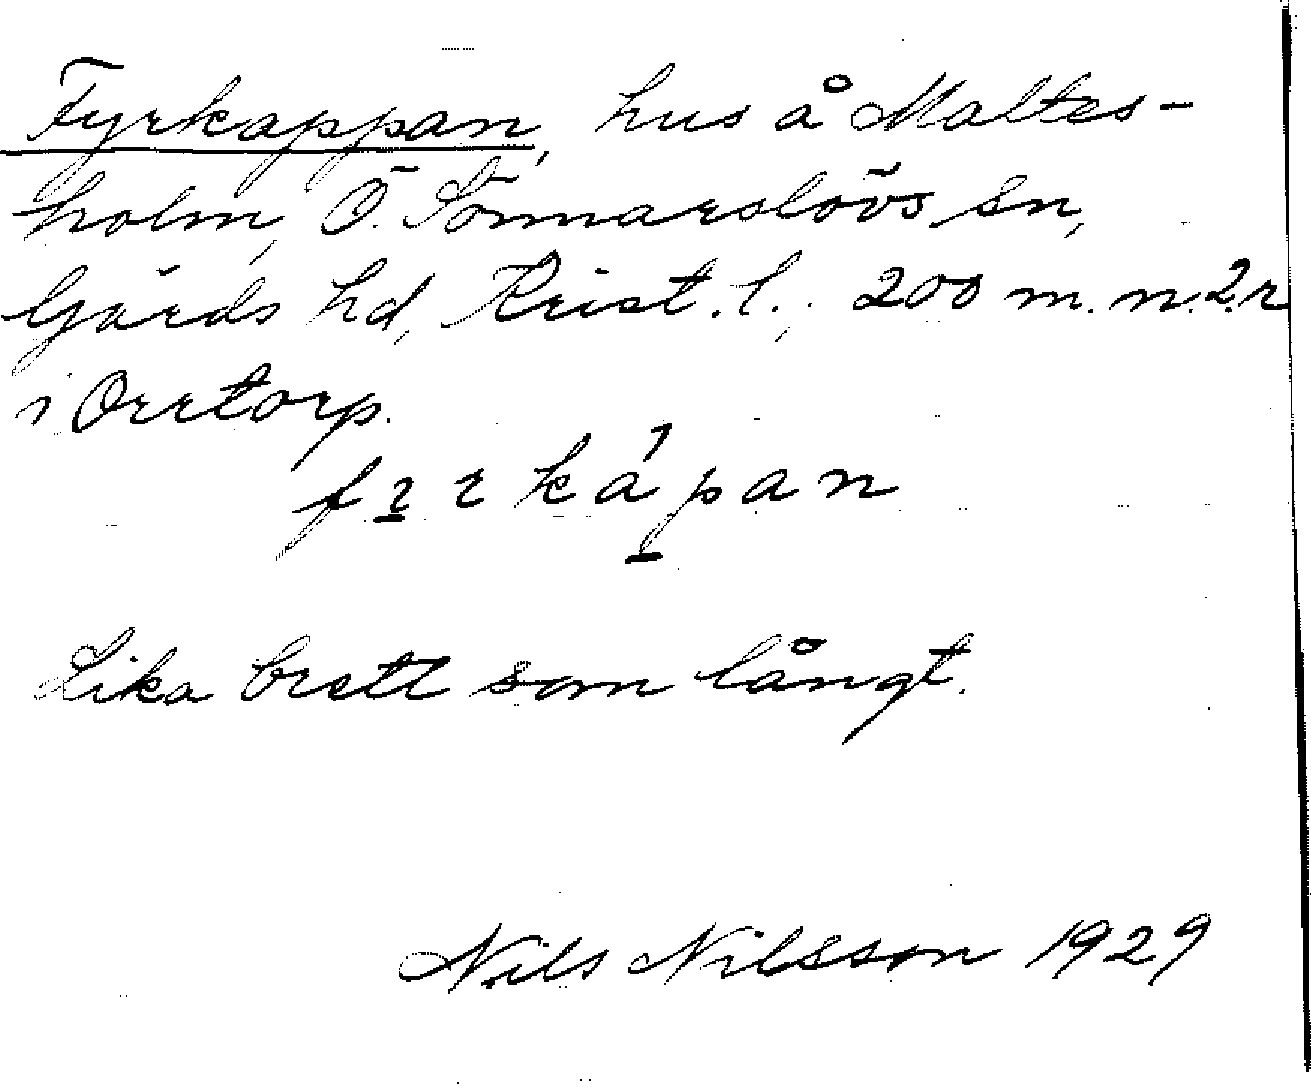 Fyrkappan, hus å Maltes-
holm, Ö. Sönnarslövs sn,
Gärds hd, Krist. l.; 200 m. n.
i Orrtorp.
Lika brett som långt.
Nils Nilsson 1929